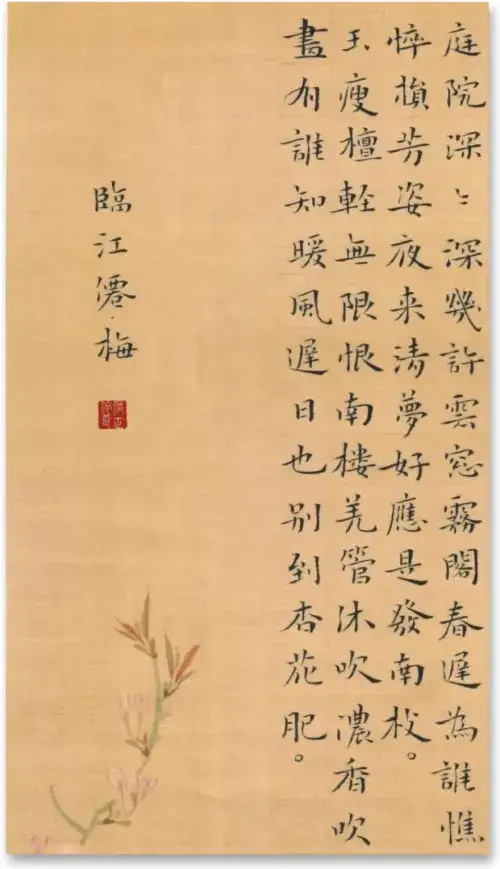 庭院深〻深幾許雲窓霧閣春遲為誰憔
悴損芳姿夜来清夢好應是發南枝。
玉瘦檀軽無限恨南楼羌管休吹濃香吹
盡有誰知暖風遲日也别到杏花肥。
臨江僊·梅